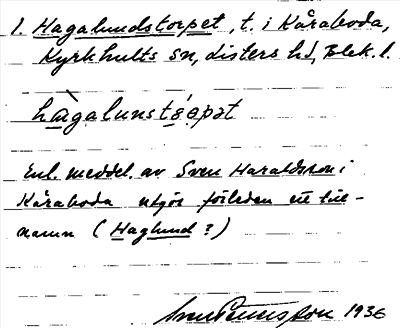 1. Hagalundstorpet, t. i Kåraboda,
Kyrkhults sn, Listers hd, Blek. l.
hàgalunstårpət
Enl. meddel. av Sven Haraldsson i
Kåraboda utgör förleden ett till-
namn (Haglund?)
1936